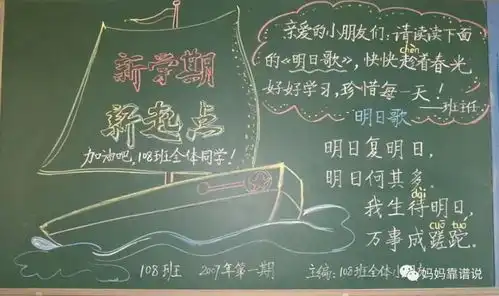 新学期
新起点
加油吧,108班全体同学!
亲爱的小朋友们:请读读下面
的《明日歌》,快快趁着春光
chèn
好好学习,珍惜每一天!
——班班
明日歌
明日复明日,
明日何其多。
dài
我生待明日,
cuō tuó
万事成蹉跎。
108班 2009年第一期 主编:108班全体小
妈妈靠谱说